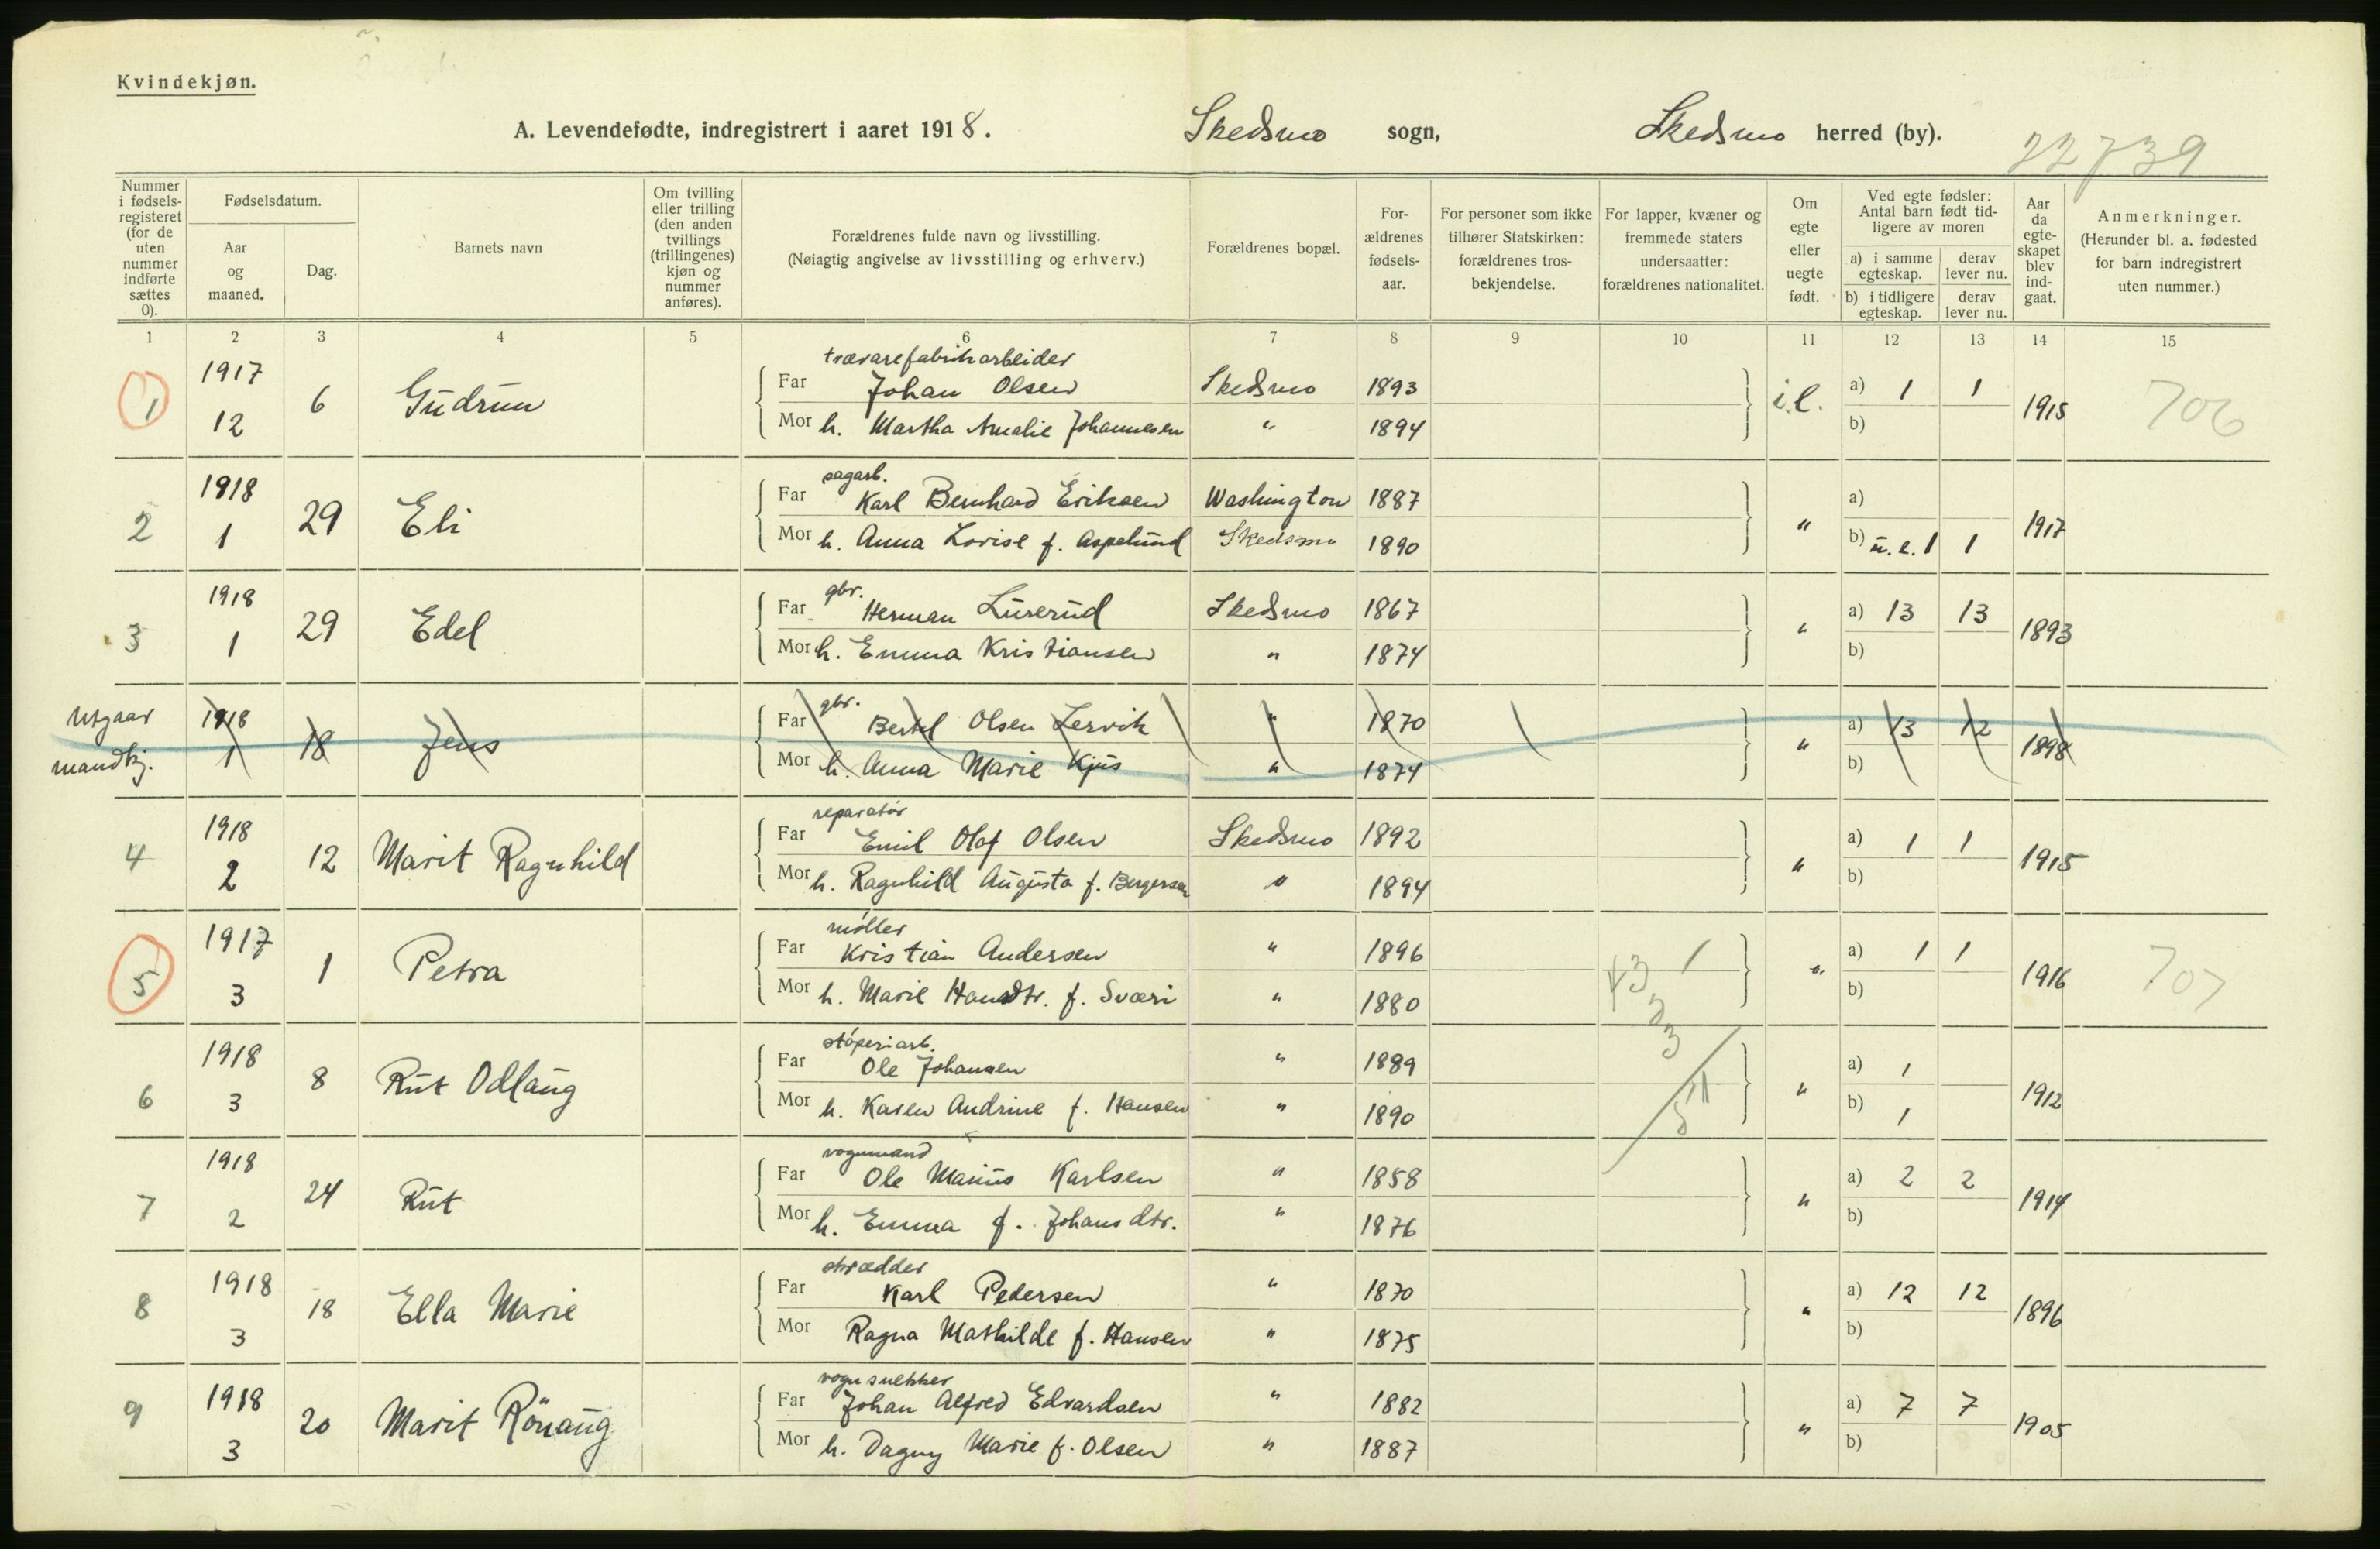 Kvindekjøn.
A. Levendefødte, indregistrert i aaret 1918. Skedsmo sogn, Skedsmo herred (by).
22739
Nummer i fødsels-registeret (for de uten nummer indførte sættes 0).
Fødselsdatum.
Aar og maaned.
Dag.
Barnets navn
Om tvilling eller trilling (den anden tvillings (trillingenes) kjøn og nummer anføres).
Forældrenes fulde navn og livsstilling.
(Nøiagtig angivelse av livsstilling og erhverv.)
Forældrenes bopæl.
For-ældrenes fødsels-aar.
For personer som ikke tilhører Statskirken: forældrenes tros-bekjendelse.
For lapper, kvæner og fremmede staters undersaatter: forældrenes nationalitet.
Om egte eller uegte født.
Ved egte fødsler: Antal barn født tid-ligere av moren
a) i samme egteskap. derav lever nu.
b) i tidligere egteskap. derav lever nu.
Aar da egte-skapet blev ind-gaat.
Anmerkninger.
(Herunder bl. a. fødested for barn indregistrert uten nummer.)
1 2 3 4 5 6 7 8 9 10 11 12 13 14 15
trævarefabrikarbeider
1 1917 12 6 Gudrun Far Johan Olsen Skedsmo 1893 i.e. a) 1 1 1915 706
Mor h. Martha Amalie Johannesen " 1894 b)
sagarb.
2 1918 1 29 Eli Far Karl Bernhard Eriksen Washington 1887 " a) 1917
Mor h. Anna Lovise f. Aspelund Skedsmo 1890 b) u.e. 1 1
gbr.
3 1918 1 29 Edel Far Herman Luserud Skedsmo 1867 " a) 13 13 1893
Mor h. Emma Kristiansen " 1874 b)
Utgaar mandkj.
gbr.
1918 1 18 Jens Far Bertel Olsen Lervik " 1870 " a) 13 12 1898
Mor h. Anna Marie Kjus " 1874 b)
reparatør
4 1918 2 12 Marit Ragnhild Far Emil Olaf Olsen Skedsmo 1892 " a) 1 1 1915
Mor h. Ragnhild Augusta f. Bergersen " 1894 b)
møller
5 1917 3 1 Petra Far Kristian Andersen " 1896 " a) 1 1 1916 707
Mor h. Marie Hansdtr. f. Sværi " 1880 b)
støperiarb.
6 1918 3 8 Rut Odlaug Far Ole Johansen " 1889 " a) 1 1912
Mor h. Karen Andrine f. Hansen " 1890 b) 1
vognmand
7 1918 2 24 Rut Far Ole Marius Karlsen " 1858 " a) 2 2 1914
Mor h. Emma f. Johansdtr. " 1876 b)
skrædder
8 1918 3 18 Ella Marie Far Karl Pedersen " 1870 " a) 12 12 1896
Mor Ragna Mathilde f. Hansen " 1875 b)
vognsnekker
9 1918 3 20 Marit Rönaug Far Johan Alfred Edvardsen " 1882 " a) 7 7 1905
Mor h. Dagny Marie f. Olsen " 1887 b)